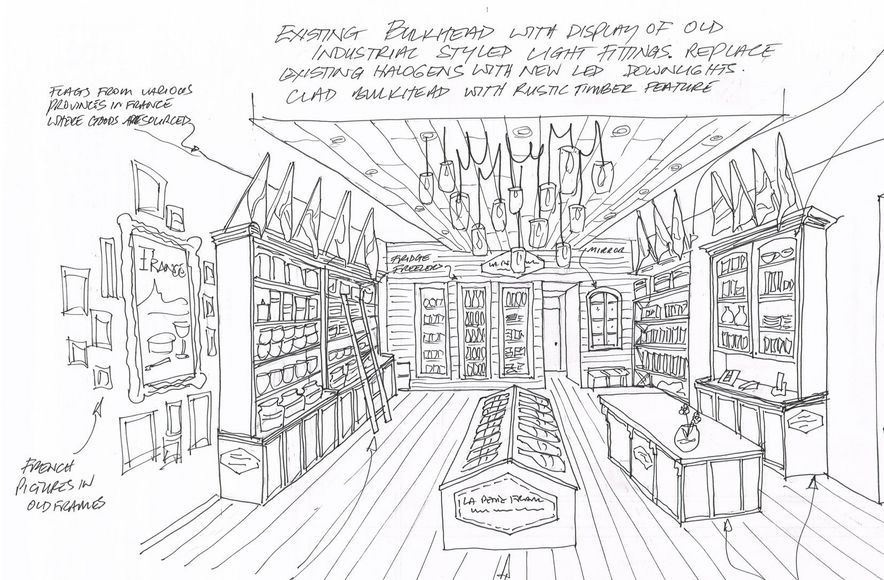 EXISTING BULKHEAD WITH DISPLAY OF OLD
INDUSTRIAL STYLED LIGHT FITTINGS. REPLACE
EXISTING HALOGENS WITH NEW LED DOWNLIGHTS.
CLAD BULKHEAD WITH RUSTIC TIMBER FEATURE
FLAGS FROM VARIOUS
PROVINCES IN FRANCE
WHERE GOODS ARE SOURCED
FRANCE
FRIDGE
FREEZER
MIRROR
FRENCH
PICTURES IN
OLD FRAMES
LA PETIT FRANC